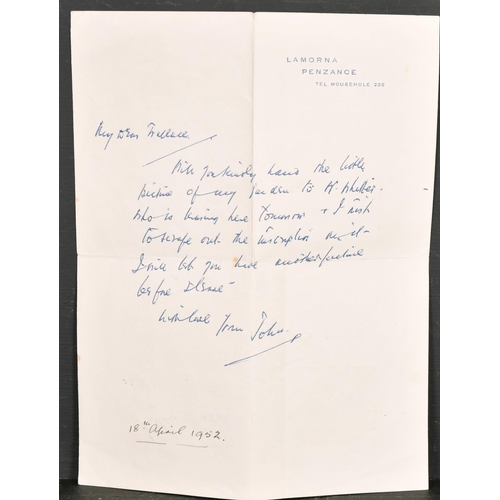 LAMORNA
PENZANCE
TEL MOUSEHOLE 235
My dear Wallace
Will you kindly hand the little
picture of my garden to Mr
who is leaving here tomorrow & I wish
to scrape out the Inscription on it -
I will let you have another picture
before I leave -
with love from John.
18th April 1952.